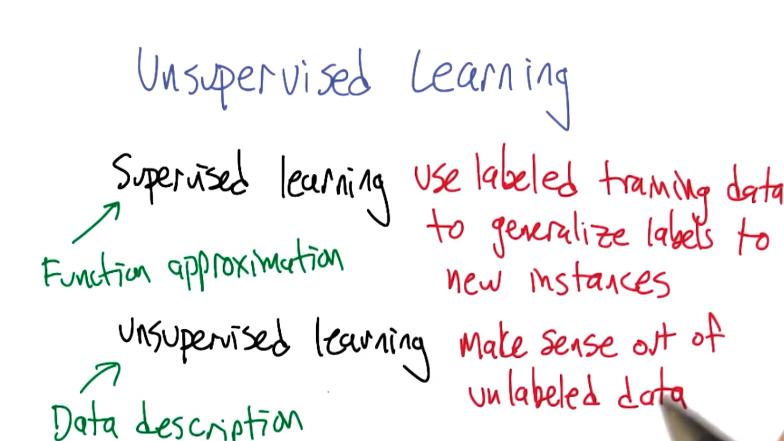 Unsupervised Learning
Supervised learning use labeled training data
to generalize labels to
Function approximation
new instances
Unsupervised learning make sense out of
unlabeled data
Data description